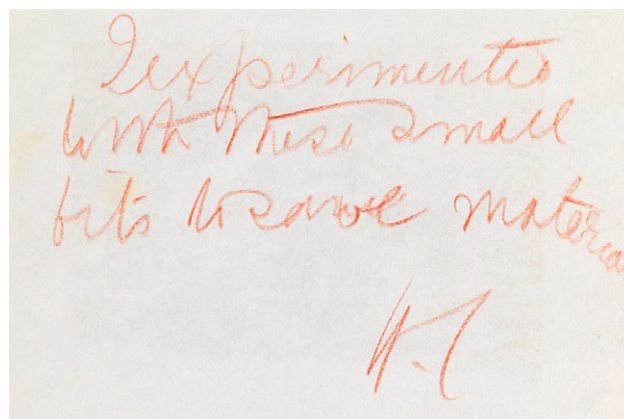 I experimented
with these small
bits to save material
H.C